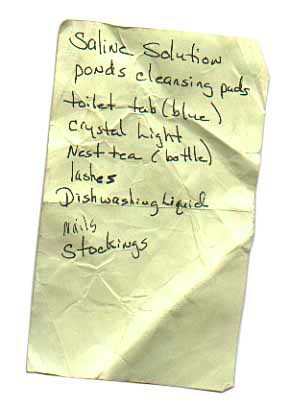 Saline Solution
ponds cleansing pads
toilet tab (blue)
Crystal Light
Nestea (bottle)
lashes
Dishwashing Liquid
nails
Stockings